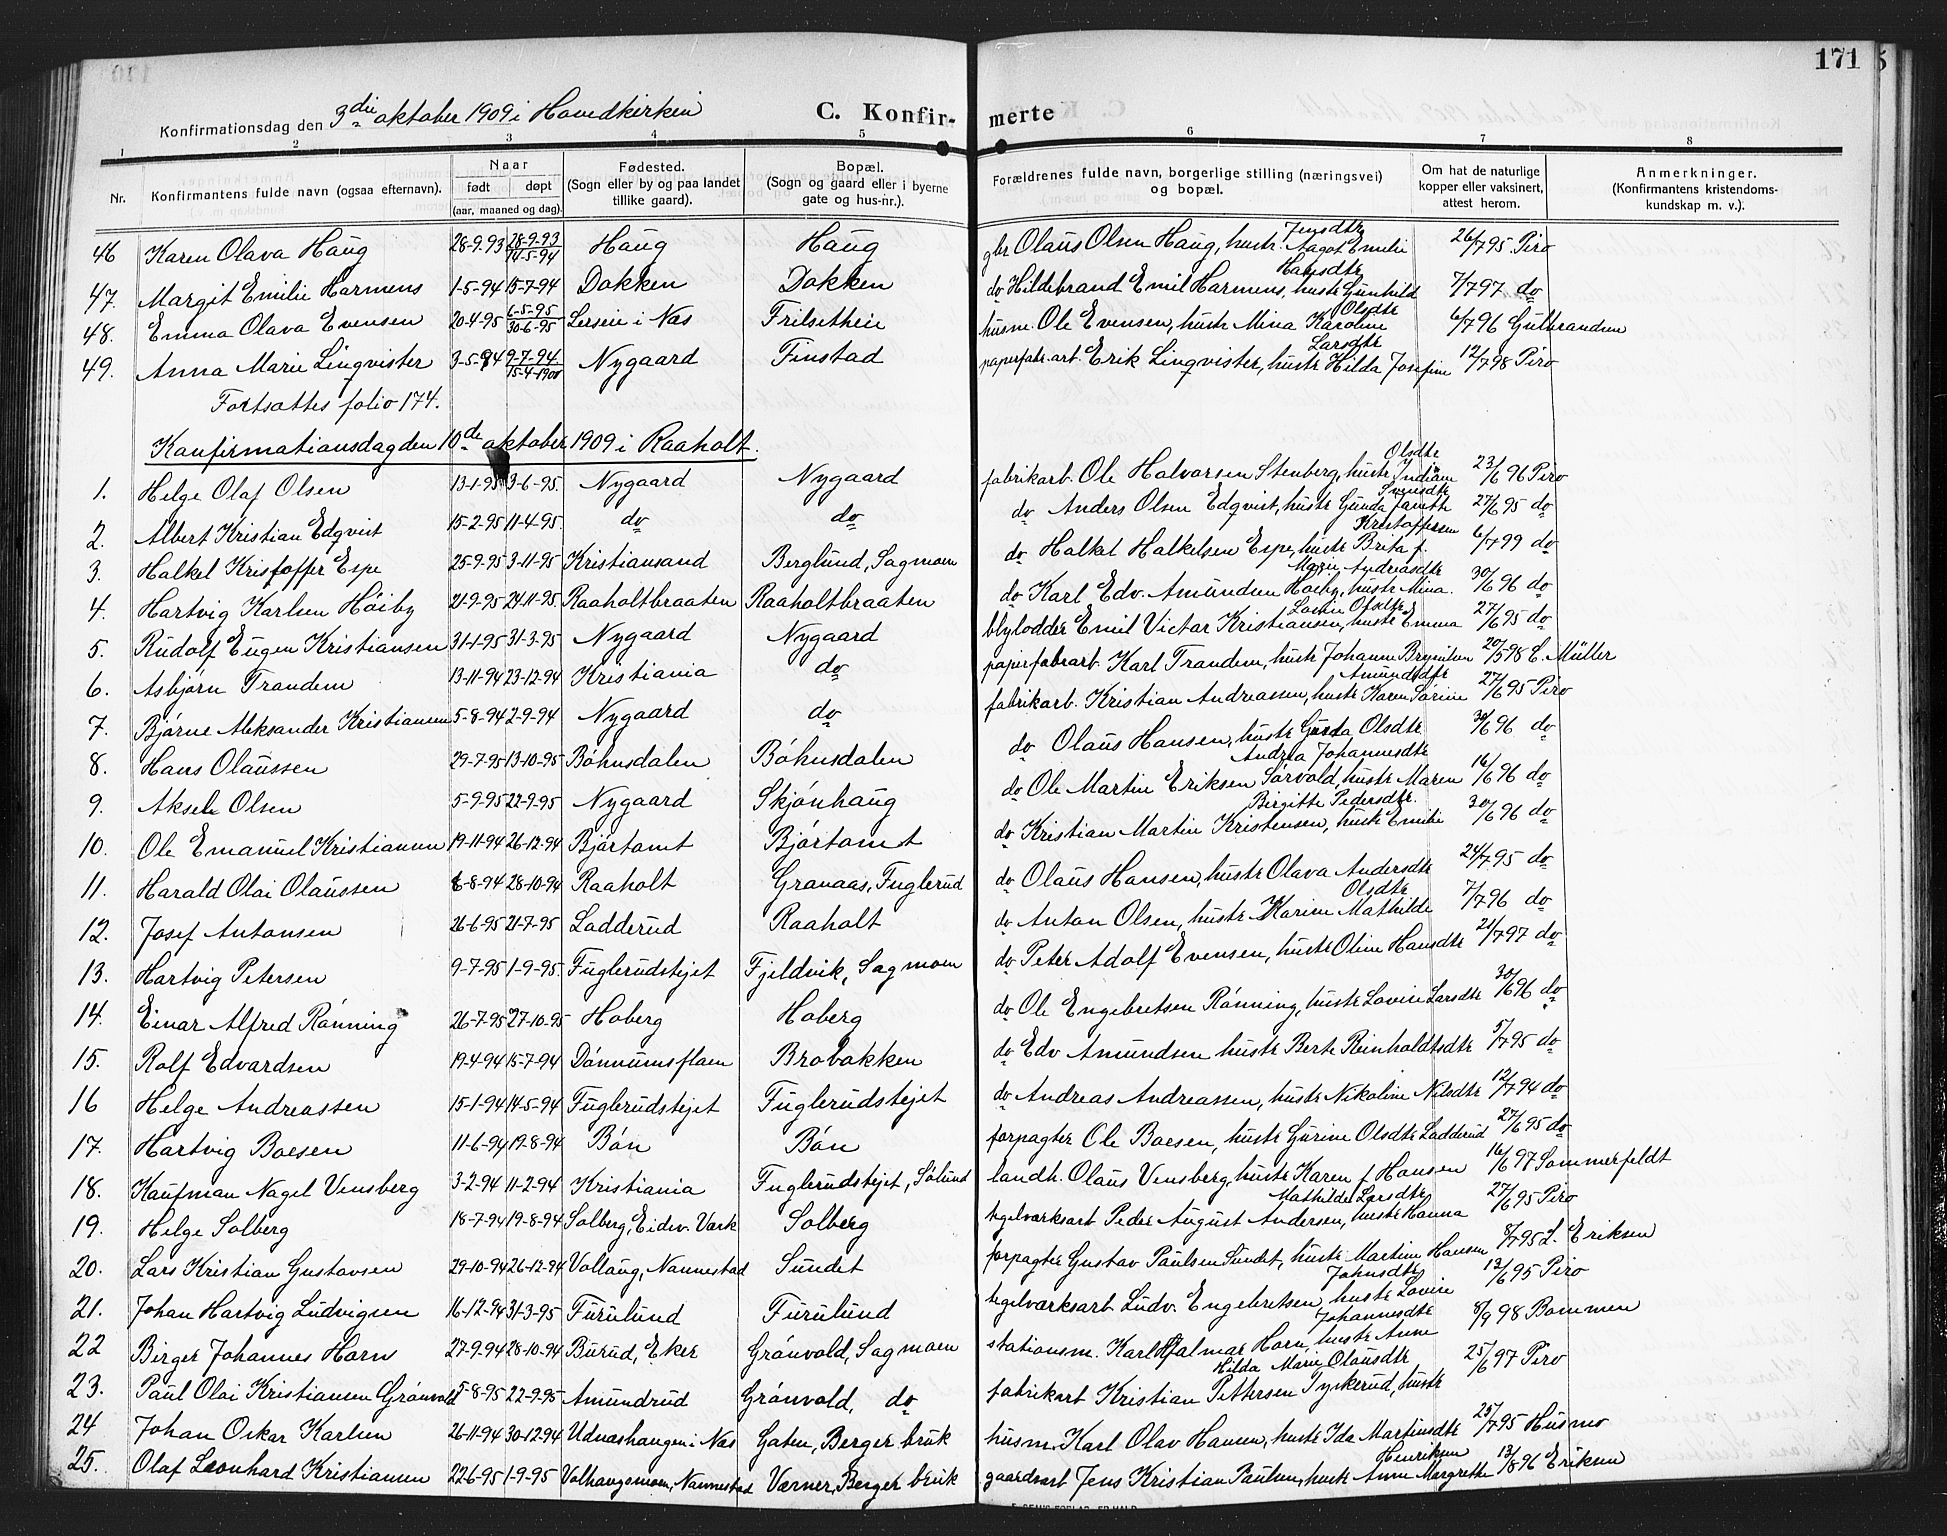 171
Konfirmationsdag den 3die oktober 1909 i Hovedkirken C. Konfir-merte
1 2 3 4 5 6 7 8
Nr. Konfirmantens fulde navn (ogsaa efternavn). Naar født døpt (aar, maaned og dag). Fødested. (Sogn eller by og paa landet tillike gaard). Bopæl. (Sogn og gaard eller i byerne gate og hus-nr.). Forældrenes fulde navn, borgerlige stilling (næringsvei) og bopæl. Om hat de naturlige kopper eller vaksinert, attest herom. Anmerkninger. (Konfirmantens kristendoms-kundskap m. v.).
46 Karen Olava Haug 28-9-93 28-9-93 14-5-94 Haug Haug gbr Olaus Olsen Haug, hustr. Aagot Emilie Jensdtr 26/7 95 Piro
47. Margit Emilie Harmens 1-5-94 15-7-94 Dokken Dokken do Hildebrand Emil Harmens, hustr Gunhild Hansdtr 7/7 97 do
48. Emma Olava Evensen 20-4-95 6-5-95 30-6-95 Lersein i Næs Frilsetheie husm. Ole Evensen, hustr Mina Karoline Olsdtr 6/7 96 Gulbrandsen
49. Anna Marie Linqvister 3-5-94 9-7-94 15-4-1900 Nygaard Finstad papirfabr.arb. Erik Linqvister, hustr Hilda Josefine Larsdtr 12/7 98 Piro
Fortsættes folio 174.
Konfirmationsdag den 10de oktober 1909 i Raaholt.
1. Helge Olaf Olsen 13-1-95 3-6-95. Nygaard Nygaard fabrikarb. Ole Halvorsen Stenberg, hustr Indiane Olsdtr 23/6 96 Piro
2. Albert Kristian Edqvist 15-2-95 11-4-95. do do do Anders Olsen Edqvist, hustr Gunda Svensdtr 27/6 95 do
3. Halkel Kristoffer Espe 25-9-95 3-11-95 Kristiansand Berglund, Sagmoen do Halkel Halkelsen Espe, hustr Brita f. Kristoffersen 6/7 99 do
4. Hartvig Karlsen Höiby 21-9-95 24-11-95. Raaholtbraaten Raaholtbraaten do Karl Edv. Amundsen Høiby, hustr Mina Marie Andreasdtr 30/6 96 do
5. Rudolf Eugen Kristiansen 31-1-95 31-3-95 Nygaard Nygaard blylodder Emil Victor Kristiansen, hustr Emma Lovise Olsdtr 27/6 95 do
6. Asbjørn Trandem 13-11-94 23-12-94 Kristiania do papirfabrarb. Karl Trandem, hustr Johanne Brynilsen 20/5 98 C. Müller
7. Bjarne Aleksander Kristiansen 5-8-94 2-9-94 Nygaard do fabrikarb. Kristian Andreassen, hustr Karen Sørine Amundsdtr 27/6 95 Piro
8. Hans Olaussen 29-7-95 13-10-95 Böhnsdalen Böhnsdalen do Olaus Hansen, hustr Gunda Olsdtr 30/6 96 do
9. Aksel Olsen 5-9-95 22-9-95 Nygaard Skjönhaug do Ole Martin Eriksen Sørvold, hustr Maren Andrea Johannesdtr 16/6 96 do
10. Ole Emanuel Kristiansen 19-11-94 26-12-94 Bjørtomt Bjørtomt do Kristian Martin Kristensen, hustr Emilie Birgitte Pedersdtr. 30/6 96 do
11. Harald Olai Olaussen 6-8-94 28-10-94 Raaholt Granaas, Fuglerud do Olaus Hansen, hustr Olava Andersdtr 24/7 95 do
12. Josef Antonsen 26-6-95 21-7-95 Ladderud Raaholt do Anton Olsen, hustr Karine Mathilde Olsdtr 7/7 96 do
13. Hartvig Petersen 9-7-95 1-9-95 Fuglerudstejet Fjeldvik, Sagmoen do Peter Adolf Evensen, hustr Oline Hansdtr 21/7 97 do
14. Einar Alfred Rönning 26-7-95 27-10-95 Hoberg Hoberg do Ole Engebretsen Rönning, hustr Lovise Larsdtr 30/6 96 do
15. Rolf Edvardsen 19-4-94 15-7-94 Dönnumsflaen Brobakken do Edv Amundsen hustr Berte Reinholdtsdtr 5/7 95 do
16 Helge Andreassen 15-1-94 14-5-94 Fuglerudstejet Fuglerudstejet do Andreas Andreassen, hustr Nikoline Nilsdtr 12/7 94 do
17. Hartvig Boesen 11-6-94 19-8-94 Bön Bön forpagter Ole Boesen, hustr Gurine Olsdtr Ladderud 27/6 95 do
18. Kaufman Nagel Vensberg 3-2-94 11-2-94 Kristiania Fuglerudstejet, Sølund landh. Olaus Vensberg, hustr Karen f. Hansen 16/6 97 Sommerfeldt
19. Helge Solberg 18-7-94 19-8-94 Solberg, Eidsv. Værk Solberg teglværksarb Peder August Andersen, hustr Hanna Mathilde Larsdtr 27/6 95 Piro
20. Lars Kristian Gustavsen 29-10-94 26-12-94 Vollaug, Nannestad Sundet forpagter Gustav Paulsen Sundet, hustr Martine Hansen 8/7 95 L. Eriksen
21. Johan Hartvig Ludvigsen 16-12-94 31-3-95 Furulund Furulund teglværksarb Ludv. Engebretsen, hustr Lovise Johnsdtr 12/6 95 Piro
22 Birger Johannes Horn 27-9-94 28-10-94 Burud, Eker Grönvold, Sagmoen stationsm. Karl Hjalmar Horn, hustr Anne Johannesdtr 8/9 98 Bommen
23. Paul Olai Kristiansen Grönvold 5-8-95 22-9-95 Amundrud Grönvold, do fabrikarb Kristian Pettersen Tyskerud, hustr Hilda Marie Olausdtr 25/6 97 Piro
24 Johan Oskar Karlsen 26-11-94 30-12-94 Udnæshaugen i Næs Gaten, Berger bruk husm. Karl Olav Hansen, hustr Ida Martinsdtr 25/7 95 Husmo
25. Olaf Leonhard Kristiansen 22-6-95 1-9-95 Volhaugsmoen, Nannestad Værner, Berger bruk gaardsarb Jens Kristian Paulsen, hustr Anne Margrethe Henriksen 13/8 96 Eriksen